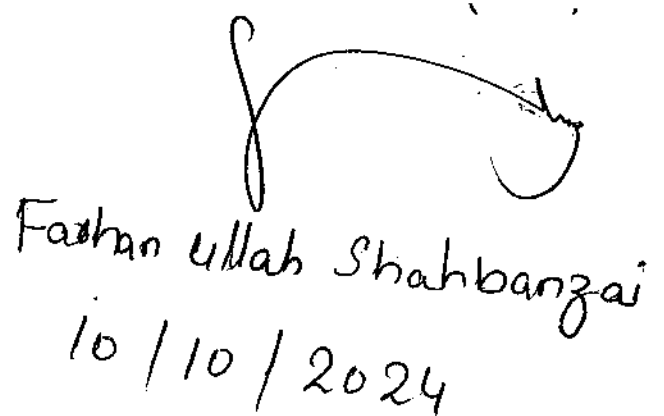 Farhan ullah Shahbanzai
10/10/2024